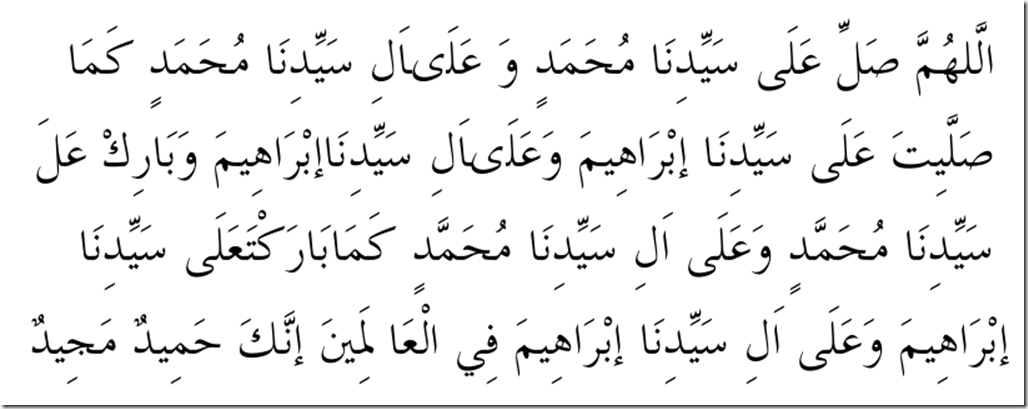 الَّلهُمَّ صَلِّ عَلَى سَيِّدِنَا مُحَمَدٍ وَ عَلَىاَلِ سَيِّدِنَا مُحَمَدٍ كَمَا
صَلَّيِتَ عَلَى سَيِّدِنَا إبْرَاهِيمَ وَعَلَىاَلِ سَيِّدِنَاإبْرَاهِيمَ وَبَارِكْ عَلَ
سَيِّدِنَا مُحَمَّدٍ وَعَلَى اَلِ سَيِّدِنَا مُحَمَّدٍ كَمَابَارَكْتَعَلَى سَيِّدِنَا
إبْرَاهِيمَ وَعَلَى اَلِ سَيِّدِنَا إبْرَاهِيمَ فِي الْعَا لَمِينَ إنَّكَ حَمِيدٌ مَجِيدٌ